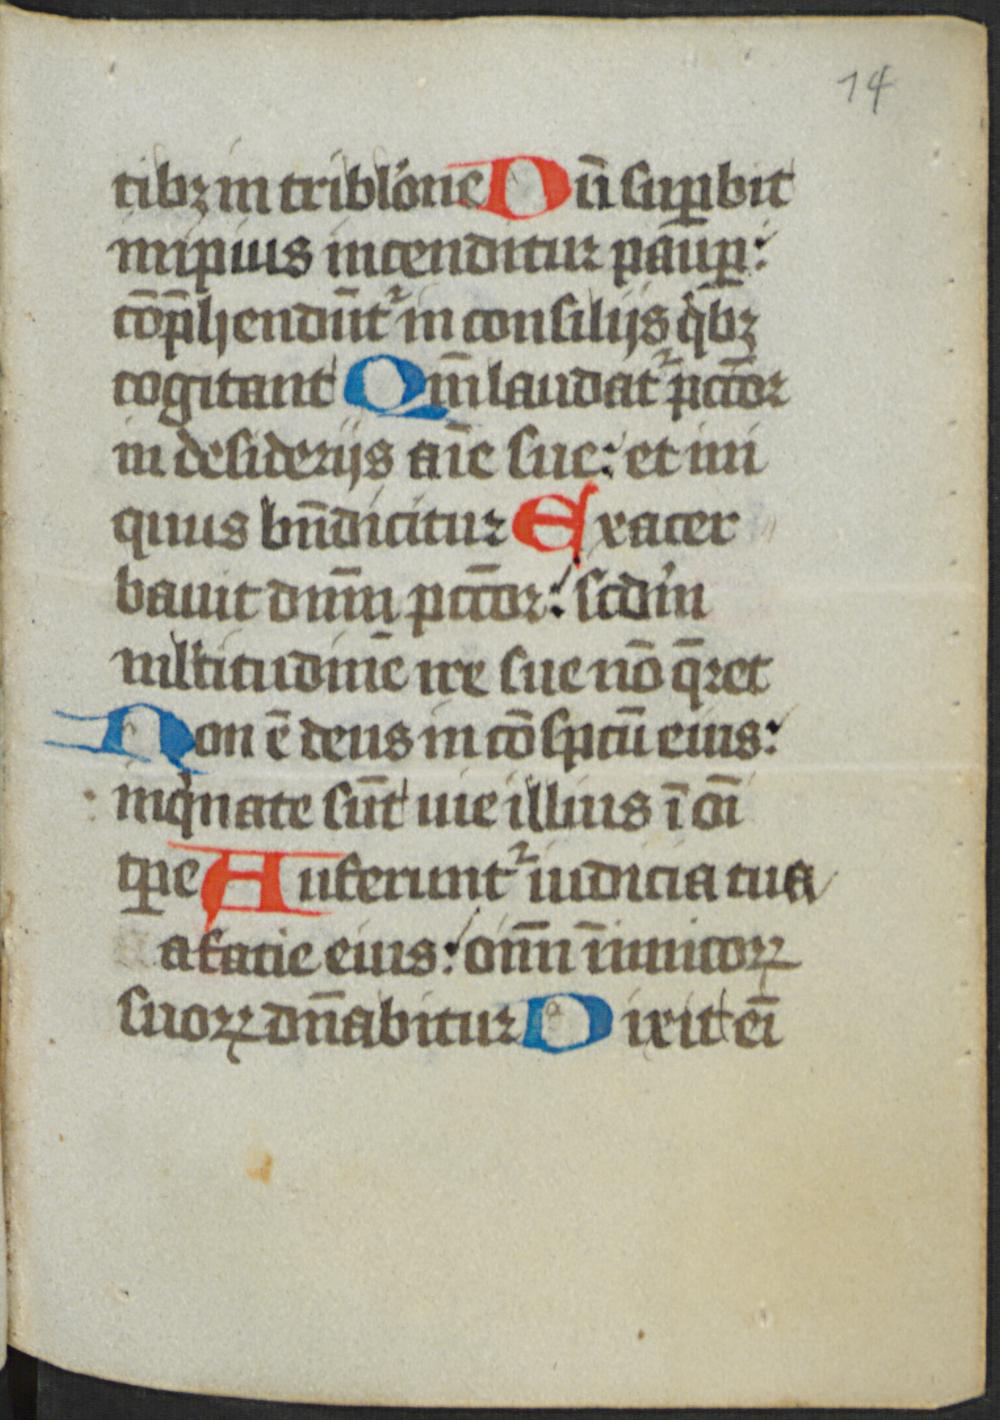 14
tibꝫ in tribl'one Dū suꝑbit
impius incenditur pauꝑ:
cōp̄hendūt᷑ in consilijs qͥbꝫ
cogitant Qm̄ laudat᷑ pctōr
in desiderijs aīe sue: et ini
quus bn̄dicitur Exacer
bauit dnm̄ pctōr: scd'm
ml'titudinē ire sue nō q̄ret
Non ē deus in cōspctū eius:
inqͥnate sūt uie illius ī oī
tꝑe Auferunt᷑ iudicia tua
a facie eius: oīm̄ īimicoꝝ
suoꝝ dn̄abitur Dixit eī